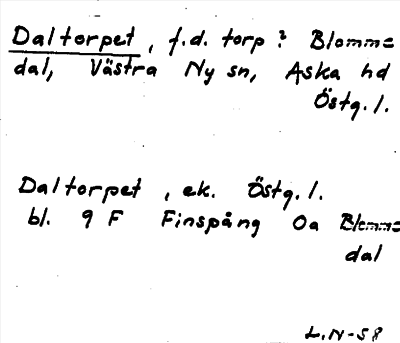 Daltorpet, f.d. torp? Blomme
dal, Västra Ny sn, Aska hd
Östg. l.
Daltorpet, ek. Östg. l.
bl. 9 F Finspång Oa Blomme
dal
L.N-58